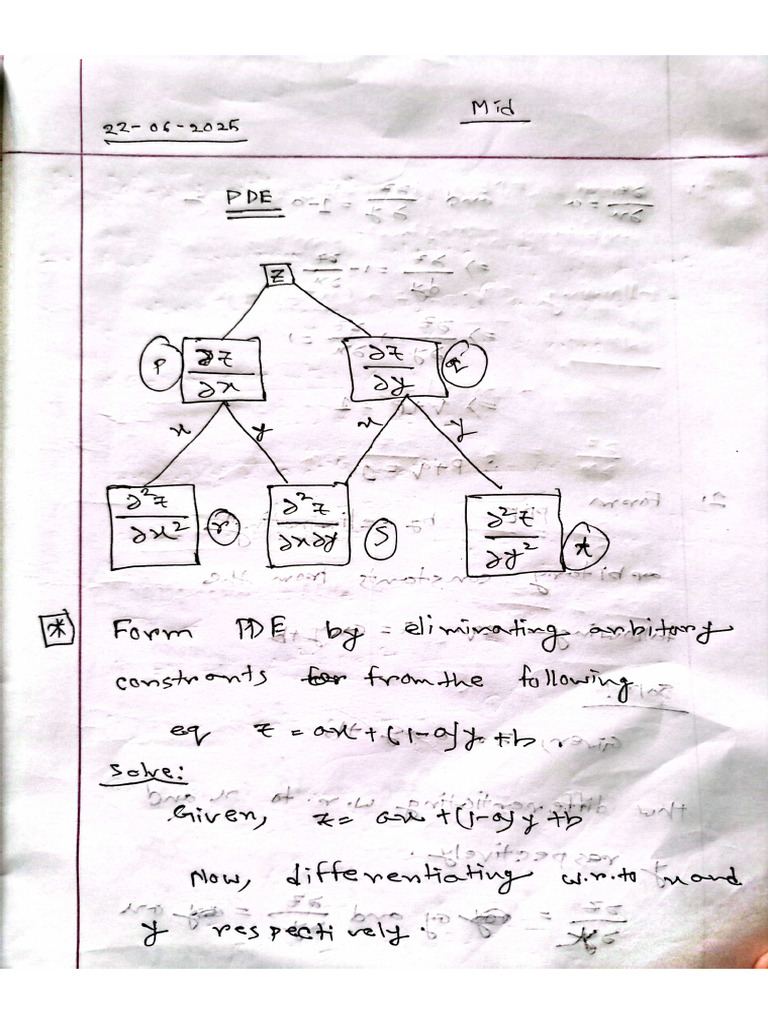 Mid
22-06-2025
PDE
z
p ∂z/∂x ∂z/∂y q
x y x y
∂²z/∂x² r ∂²z/∂x∂y s ∂²z/∂y² t
* Form PDE by eliminating arbitory
constrants from the following
eq z = ax + (1-a)y + b
Solve:
Given, z = ax + (1-a)y + b
Now, differentiating w.r.to x and
y respectively.